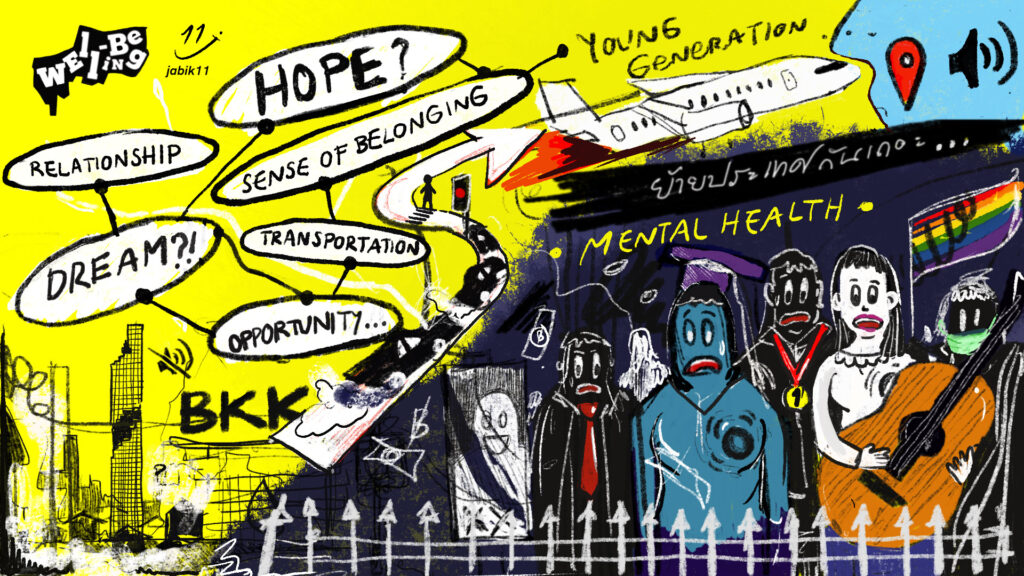 Well-Being
11
jabik11
HOPE?
YOUNG
GENERATION
RELATIONSHIP
SENSE OF BELONGING
DREAM?!
TRANSPORTATION
OPPORTUNITY...
BKK
ย้ายประเทศกันเถอะ...
MENTAL HEALTH
1
฿
฿